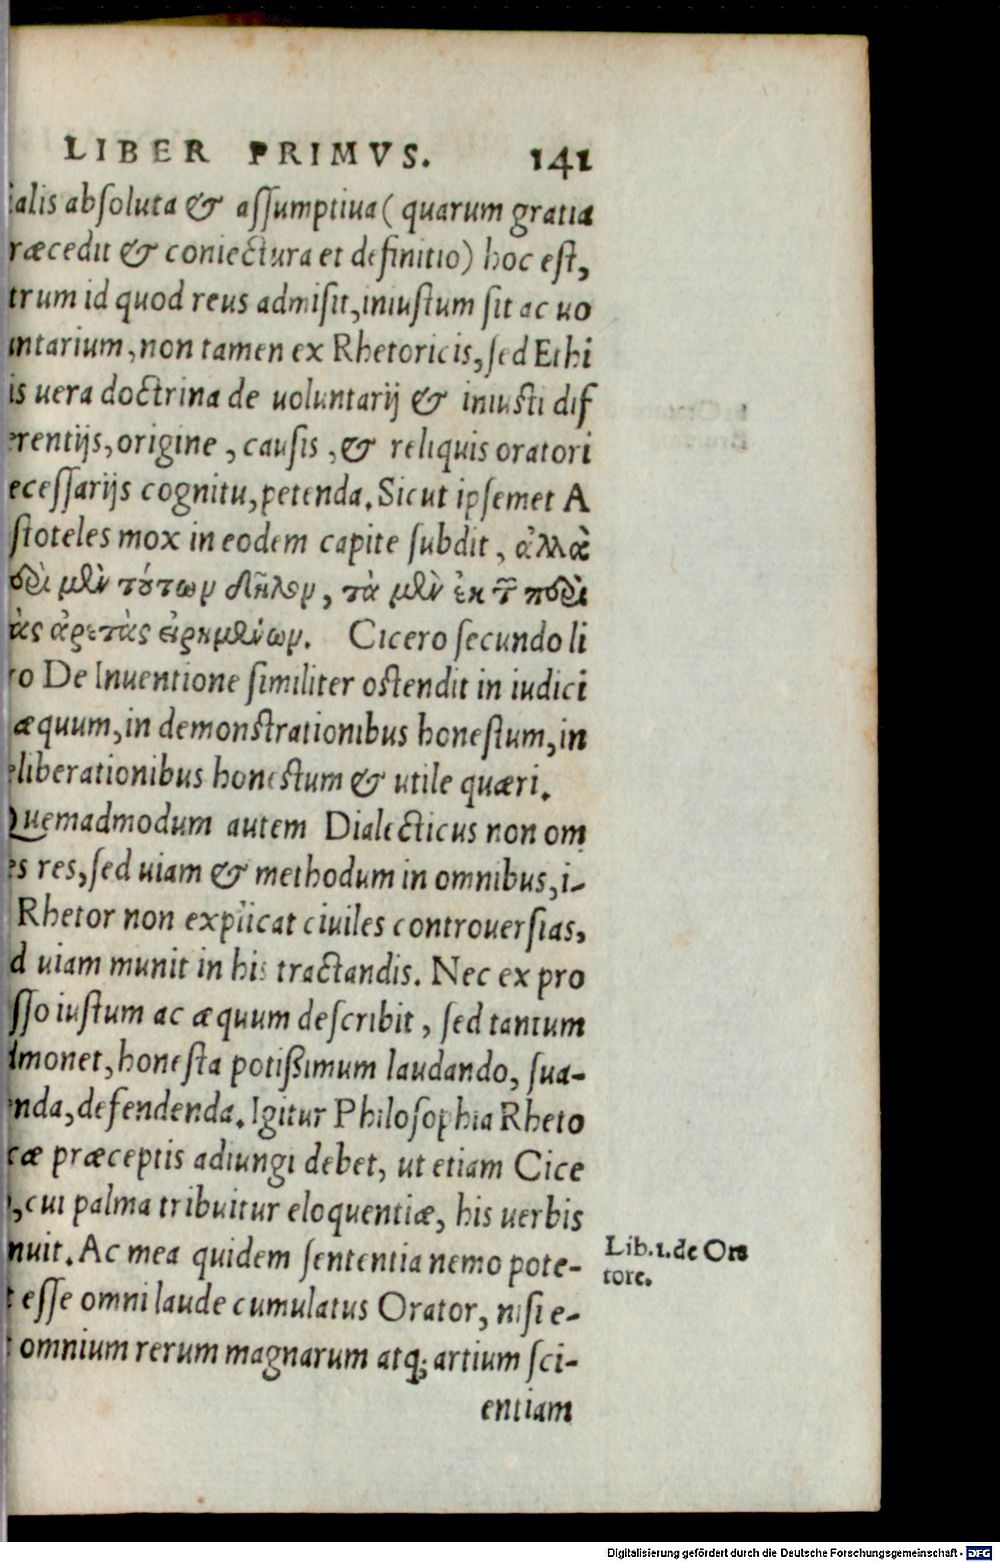 LIBER PRIMVS. 141
alis absoluta & assumptiua ( quarum gratia
ræcedit & coniectura et definitio) hoc est,
trum id quod reus admisit, iniustum sit ac uo
ntarium, non tamen ex Rhetoricis, sed Ethi
is uera doctrina de uoluntarij & iniusti dif
erentijs, origine , causis , & reliquis oratori
ecessarijs cognitu, petenda. Sicut ipsemet A
stoteles mox in eodem capite subdit , ἀλλὰ
μὲν τούτων δῆλον, τὰ μὲν ἐκ τ περὶ
ὰς ἀρετὰς εἰρημένων. Cicero secundo li
ro De Inuentione similiter ostendit in iudici
æquum, in demonstrationibus honestum, in
eliberationibus honestum & utile quæri.
Quemadmodum autem Dialecticus non om
es res, sed uiam & methodum in omnibus, i-
Rhetor non explicat ciuiles controuersias,
d uiam munit in his tractandis. Nec ex pro
sso iustum ac æquum describit , sed tantum
dmonet, honesta potißimum laudando, sua-
nda, defendenda. Igitur Philosophia Rheto
cæ præceptis adiungi debet, ut etiam Cice
, cui palma tribuitur eloquentiæ, his uerbis
nuit. Ac mea quidem sententia nemo pote-
t esse omni laude cumulatus Orator, nisi e-
t omnium rerum magnarum atq; artium sci-
entiam
Lib.1.de Ora
tore.
Digitalisierung gefördert durch die Deutsche Forschungsgemeinschaft - DFG